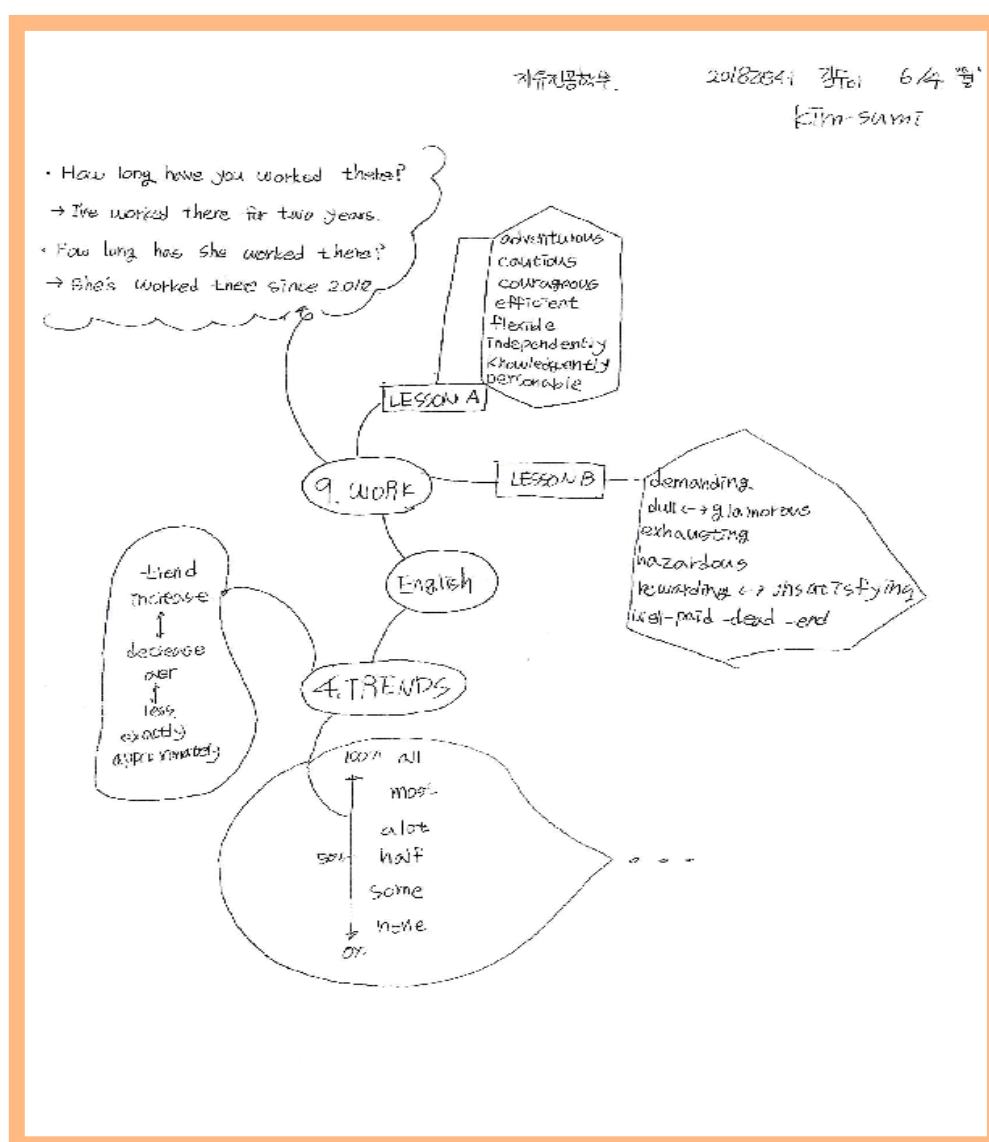 kim-sumi
· How long have you worked there?
→ I've worked there for two years.
· How long has she worked there?
→ She's worked there since 2012
adventurous
cautious
courageous
efficient
flexible
independently
personable
LESSON A
9. WORK
LESSON B
demanding
dull ↔ glamorous
exhausting
hazardous
rewarding ↔ unsatisfying
-paid -dead -end
English
trend
increase
↕
decrease
over
↕
less
exactly
approximately
4. TRENDS
100% all
most
a lot
50% half
some
none
0%